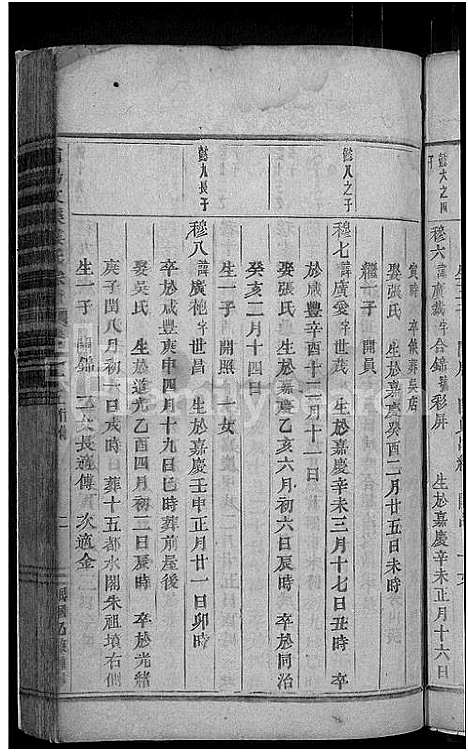 懿六之四子
穆六 諱廣裁字合錦號彩屏 生於嘉慶辛未正月十六日
寅時 卒俟葬吳店
娶張氏 生於嘉慶癸酉二月廿五日未時
繼一子 開員
懿八之子
穆七 諱廣愛字世茂 生於嘉慶辛未三月十七日丑時 卒
於咸豐辛酉十二月十一日
娶張氏 生於嘉慶乙亥六月初六日辰時 卒於同治
癸亥二月十四日
生一子 開照 一女
懿九長子
穆八 諱廣袍字世昌 生於嘉慶壬申正月廿一日卯時
卒於咸豐庚申四月十九日巳時葬前屋後
娶吳氏 生於道光乙酉四月初二日辰時 卒於光緒
庚子閏八月初一日戌時 葬十五都水閣朱祖墳右側
生一子 開錦 二女長適傅 次適金